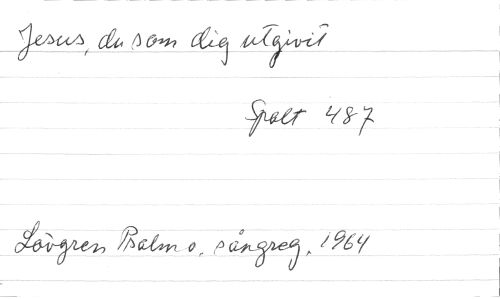 Jesus, du som dig utgivit
Spalt 487
Lövgren Psalm o. sångreg. 1964